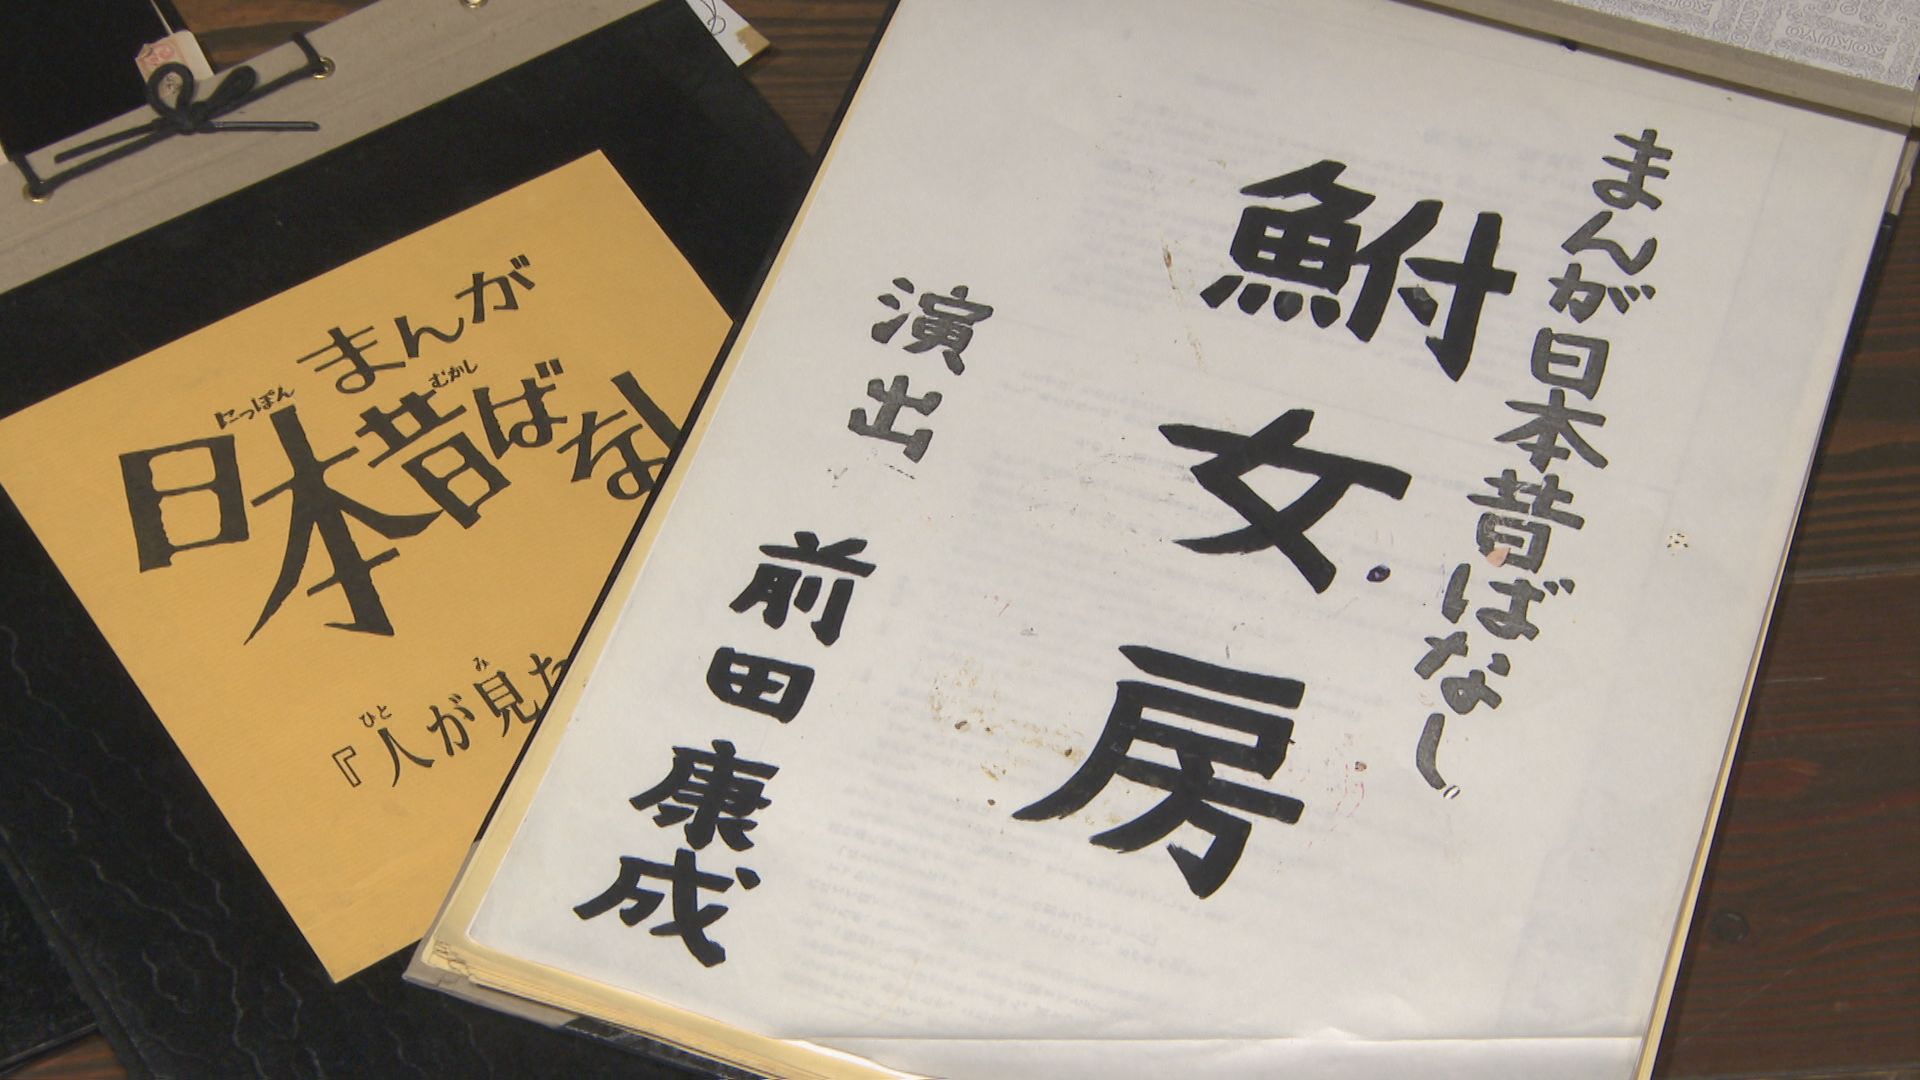 まんが
にっぽん むかし
日本昔ばなし
ひと み
『人が見た
まんが日本昔ばなし。
鮒女房
演出 前田康成
KOKUYO